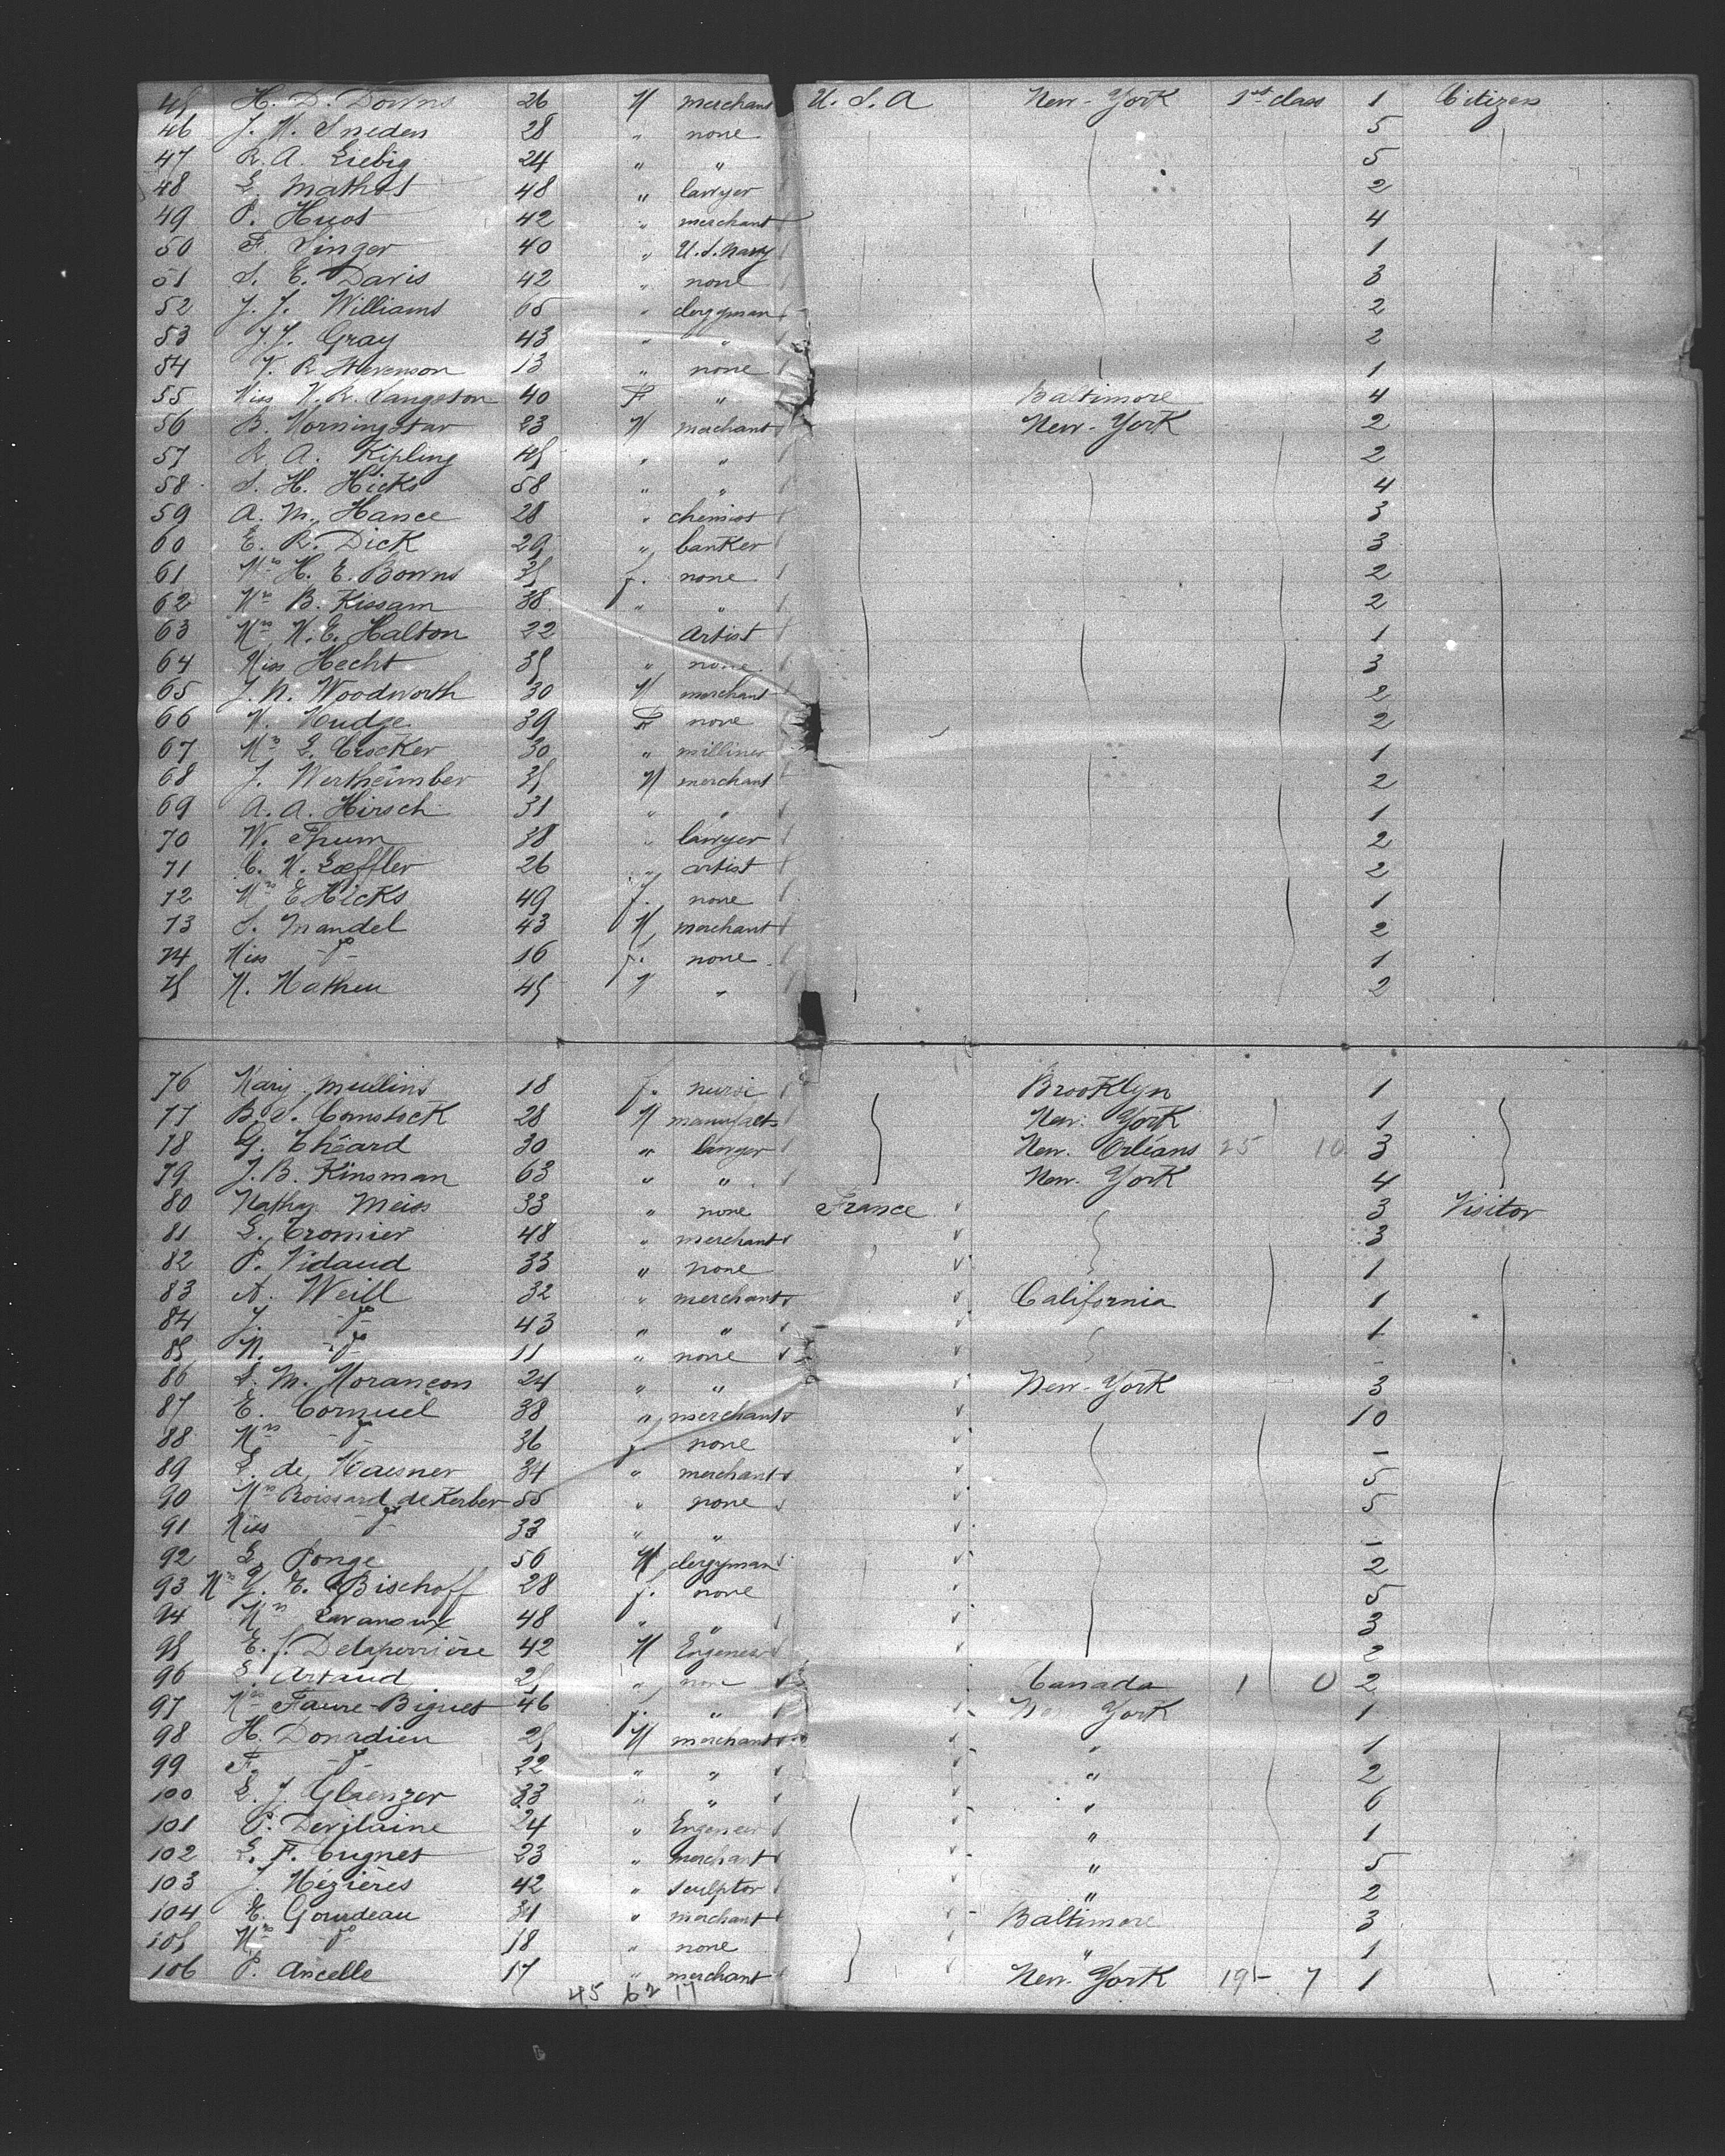 45 H. D. Downs 26 M merchant U. S. A New-York 1st class 1 Citizen
46 J. M. Sneden 28 " none 5
47 R. A. Liebig 24 " " 5
48 E. Mathes 48 " lawyer 2
49 P. Huot 42 " merchant 4
50 F. Singer 40 " U.S. Navy 1
51 S. E. Davis 42 " none 3
52 J. J. Williams 65 " clergyman 2
53 J. J. Gray 43 " " 2
54 T. R. Stevenson 13 " none 1
55 Miss M. R. Langston 40 F " Baltimore 4
56 B. Morningstar 23 M merchant New-York 2
57 R. A. Kipling 45 " " 2
58 S. H. Hicks 58 " " 4
59 A. M. Hance 28 " chemist 3
60 E. R. Dick 29 " banker 3
61 Mrs H. E. Bowns 35 f. none 2
62 Mrs B. Kissam 38 " " 2
63 Mrs M. E. Halton 22 Artist 1
64 Miss Hecht 35 " none 3
65 J. N. Woodworth 30 M merchant 2
66 M. Mudge 39 F none 2
67 Mrs L. Crocker 30 " milliner 1
68 J. Wertheimber 35 M merchant 2
69 A. A. Hirsch 31 " " 1
70 W. Thum 38 " lawyer 2
71 C. M. Lœffler 26 " artist 2
72 Mrs E Hicks 49 f. none 1
73 S. Mandel 43 M merchant 2
74 Miss -do- 16 f. none 1
75 M. Matheu 45 M " 2
76 Mary Mullins 18 f. nurse Brooklyn 1
77 B. S. Comstock 28 M manufact New-York 1
78 G. Théard 30 " lawyer New-Orléans 25 10 3
79 J. B. Kinsman 63 " " New-York 4
80 Nathan Meiss 33 " none France 3 Visitor
81 L. Cromier 48 " merchant 3
82 P. Vidaud 33 " none 1
83 A. Weill 32 " merchant California 1
84 J. -do- 43 " " 1
85 M. -do- 11 " none -
86 L. M. Morançon 24 " " New-York 3
87 E. Cornuel 38 " merchant 10
88 Mrs -do- 36 f. none -
89 L. de Maesner 34 " merchant 5
90 Mrs Boissard de Kerber 55 " none 5
91 Miss -do- 33 " " -
92 L. Ponge 56 M clergyman 2
93 Mrs G. E. Bischoff 28 f. none 5
94 Mrs Lavanoux 48 " " 3
95 E. J. Delaperrière 42 M Engeneer 2
96 L. Artaud 25 " none Canada 1 0 2
97 Mrs Faure-Biguet 46 f. " New York 1
98 H. Donadieu 25 M merchant " 1
99 F. -do- 22 " " " 2
100 L. J. Glaenzer 33 " " " 6
101 P. Dervilaine 24 " Engeneer " 1
102 L. F. Cugnet 23 " merchant " 5
103 J. Mézières 42 " sculptor " 2
104 E. Gourdeau 31 " merchant Baltimore 3
105 Mrs -do- 18 " none " 1
106 P. Ancelle 17 " merchant New-York 19 - 7 1
45 62 17